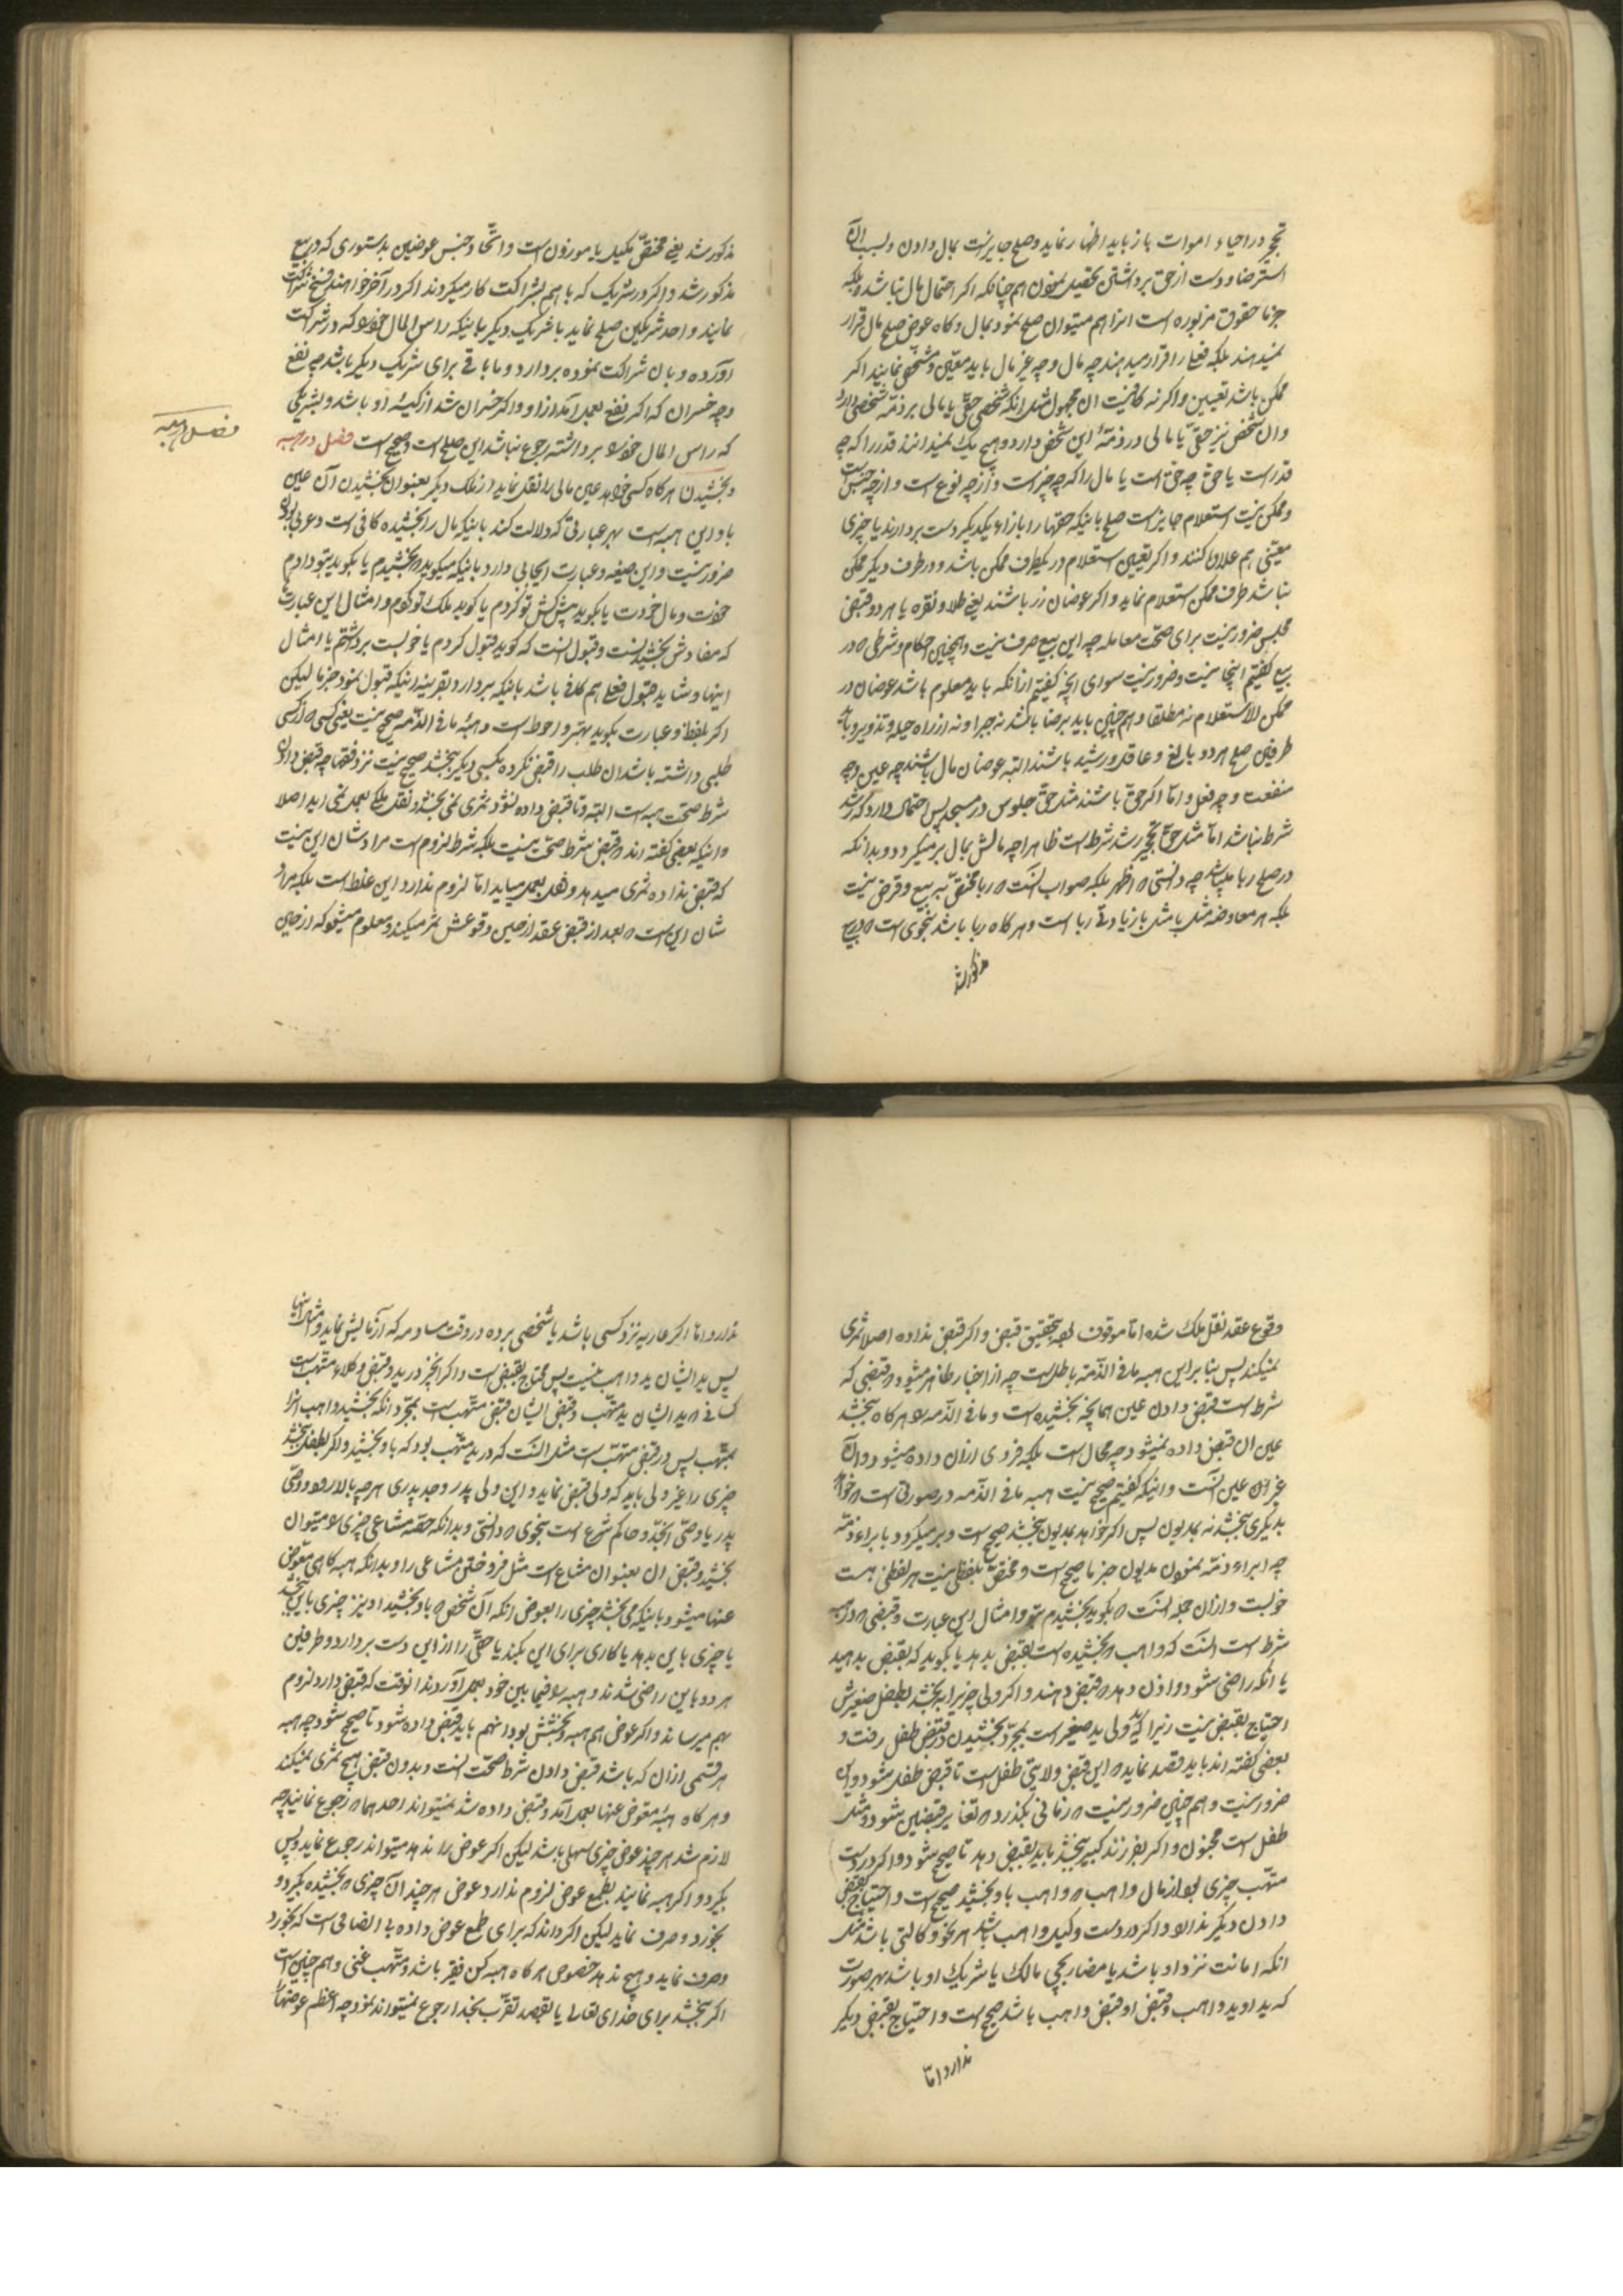 تحجیر در احیاء اموات باز باید اظهار نماید و صلح جایز است بمال دادن و بسبب آن
استرضا و دست از حق برداشتن تحصیل نمودن هم چنانکه اگر احتمال مال نباشد و بلکه
جزما حقوق مزبوره است انرا هم میتوان صلح نمود بمال و کاه عوض صلح مال قرار
نمیدهند بلکه فعل را قرار میدهند چه مال و چه غیر مال باید معین و مشخص نمایند اکر
ممکن باشد تعیین و اکر نه کافیست ان مجهول مثل انکه شخصی حقی یا مالی بر ذمه شخصی دارد
و ان شخص نیز حقی یا مالی در ذمهٔ این شخص دارد و هیچ یک نمیدانند قدر را که چه
قدر است یا حق چه حق است یا مال را که چه چیز است و از چه نوع است و از چه جنس است
و ممکن نیست استعلام جایز است صلح باینکه حقها را بازاء یکدیکر دست بردارند یا چیزی
معینی هم علاوه کنند و اکر تعیین استعلام در یکطرف ممکن باشد و در طرف دیکر ممکن
نباشد طرف ممکن استعلام نماید و اکر عوضان زر باشند یعنی طلا و نقره یا هر دو قبض
مجلس ضرور نیست برای صحت معامله چه این بیع صرف نیست و همچنین احکام و شرطی که در
بیع کفتیم اینجا نیست و ضرور نیست سوای انچه کفتیم از انکه باید معلوم باشد عوضان در
ممکن الاستعلام نه مطلقا و هم چنین باید برضا باشد نه جبرا و نه از راه حیله و تزویر و باید
طرفین صلح هر دو بالغ و عاقل و رشید باشند البته عوضان مال باشند چه عین و چه
منفعت و چه فعل و اما اکر حق باشند مثل حق جلوس در مسجد پس احتمال دارد که رشد
شرط نباشد اما مثل حق تحجیر رشد شرط است ظاهرا چه مالش بمال بر میکردد و بدانکه
در صلح ربا میباشد چه دانستی که اظهر بلکه صواب انست که ربا مختص به بیع و قرض نیست
بلکه هر معاوضه مثل بامثل با زیادتی ربا است و هر کاه ربا باشد بنحوی است که در بیع
مذکور شد
مذکور شد یعنی مختص بمکیل یا موزون است و اتحاد جنس عوضین بدستوری که در بیع
مذکور شد و اکر دو شریک که با هم بشراکت کار میکردند اکر در آخر خواهند فسخ شراکت
نمایند و احد شریکین صلح نماید با شریک دیکر باینکه راس المال خود را که در شراکت
آورده و بان شراکت نموده بردارد و مابا باقی برای شریک دیکر باشد چه نفع
و چه خسران که اکر نفع بعمل آمد از او و اکر خسران شد از کیسهٔ او باشد و بشریکی
که راس المال خود را برداشته رجوع نباشد این صلح است و صحیح است فصل در هبه
فصل در هبه
و بخشیدن هر کاه کسی خواهد عین مالی را نقل نماید از ملک دیکر بعنوان بخشیدن آن عین
باو این هبه است بهر عبارتی که دلالت کند باینکه مال را بخشیده کافی است و عربی بودن
ضرور نیست و این صیغه و عبارت ایجابی دارد باینکه میکوید که بخشیدم یا بکوید بتو دادم
خوت و مال خودت یا بکوید پیش کش تو کردم یا کوید ملک تو کردم و امثال این عبارت
که مفادش بخشیدنست و قبول انست که کوید قبول کردم یا خوبست برداشتم یا امثال
اینها و شاید قبول فعلی هم کافی باشد باینکه بردارد بقرینه اینکه قبول نمود جزما لیکن
اکر بلفظ و عبارت بکوید بهتر و احوط است و هبهٔ ما فی الذمه صحیح نیست یعنی کسی که از کسی
طلبی داشته باشد ان طلب را قبض نکرده بکسی دیکر بخشد صحیح نیست نزد فقها چه قبض دادن
شرط صحت هبه است البته و تا قبض داده نشود ثمری نمی بخشد و نقل ملک بعمل نمی اید اصلا
و اینکه بعضی کفته اند که قبض شرط صحت نیست بلکه شرط لزوم است مرادشان این نیست
که قبض نداده ثمری میدهد و نقل بعمل میاید اما لزوم ندارد این غلط است بلکه مراد
شان این است که بعد از قبض عقد از حین وقوعش ثمر میکند و معلوم میشود که از حین
وقوع عقد نقل ملک شده اما موقوف بود بتحقیق قبض و اکر قبض نداده اصلا ثمری
نمیکند پس بنا بر این هبه ما فی الذمه باطل است چه از اخبار ظاهر میشود که قبضی که
شرط است قبض دادن عین همانچه بخشیده است و ما فی الذمه را هر کاه بخشد
عین ان قبض داده نمیشود چه محال است بلکه فردی از ان داده میشود و ان
غیر آن عین است و اینکه کفتیم صحیح نیست هبه ما فی الذمه در صورتی است که خواهد
بدیکری بخشد نه بمدیون پس اکر خواهد بمدیون بخشد صحیح است و بر میکردد بابراء ذمه
چه ابراء ذمه نمودن مدیون جزما صحیح است و مختص بلفظی نیست هر لفظی هست
خوبست و از ان جمله انست که بکوید بخشیدم بتو و امثال این عبارت و قبضی که در هبه
شرط است انست که واهب که بخشیده است بقبض بدهد یا بکوید که بقبض بدهید
یا انکه راضی شود و اذن دهد که قبض دهند و اکر ولی چیزیرا بخشد بطفل صغیرش
احتیاج بقبض نیست زیرا که ید ولی ید صغیر است بمجرد بخشیدن در قبض طفل رفت و
بعضی کفته اند باید قصد نماید که این قبض ولایتی طفل است تا قبض طفل شود و این
ضرور نیست و هم چنین ضرور نیست که زمانی بکذرد که تغایر قبضین شود و مثل
طفل است مجنون و اکر بفرزند کبیر بخشد باید بقبض دهد تا صحیح شود و اکر در دست
متهب چیزی بود از مال واهب که واهب باو بخشید صحیح است و احتیاج بقبض
دادن دیکر ندارد و اکر در دست وکیل واهب باشد هر نحو وکالتی باشد مثل
انکه امانت نزد او باشد یا مضاربچی مالک یا شریک او باشد بهر صورت
که ید او ید واهب و قبض او قبض واهب باشد صحیح است و احتیاج بقبض دیکر
ندارد اما
ندارد و اما اکر عاریه نزد کسی باشد یا شخصی برده در وقت مساومه که آزمایش نماید و امثال اینها
پس ید ایشان ید واهب نیست پس محتاج بقبض است و اکر انچیز در ید و قبض وکلاء متهب است
کسانی که ید ایشان ید متهب و قبض ایشان قبض متهب است بمجرد انکه بخشید واهب انرا
بمتهب پس در قبض متهب است مثل انست که در ید متهب بود که باو بخشید و اکر بطفل بخشد
چیزی را غیر ولی باید که ولی قبض نماید و این ولی پدر و جد پدری هر چه بالا رود و وصی
پدر یا وصی الجد و حاکم شرع است بنحوی که دانستی و بدانکه حصه مشاعی چیزی را میتوان
بخشید و قبض ان بعنوان مشاع است مثل فروختن مشاعی را و بدانکه هبه کاهی معوض
عنها میشود باینکه می بخشد چیزی را بعوض انکه آن شخص که باو بخشید او نیز چیزی باین بخشد
یا چیزی باین بدهد یا کاری برای این بکند یا حقی را از این دست بردارد و طرفین
هر دو باین راضی شدند و هبه را فیما بین خود بعمل آوردند انوقت که قبض دارد لزوم
بهم میرساند و اکر عوض هم هبه و بخشش بود انهم باید قبض داده شود تا صحیح شود چه هبه
هر قسمی از ان که باشد قبض دادن شرط صحت انست و بدون قبض هیچ ثمری نمیکند
و هر کاه هبهٔ معوض عنها بعمل آمد و قبض داده شد نمیتواند احدهما که رجوع نمایند چه
لازم شد هر چند عوض چیزی سهلی باشد لیکن اکر عوض را ندهد میتواند رجوع نماید و پس
بکیرد و اکر هبه نمایند بطمع عوض لزوم ندارد عوض هر چند آن چیزی که بخشیده بکیرد و
بخورد و صرف نماید لیکن اکر داند که برای طمع عوض داده بی انصافی است که بخورد
و صرف نماید و هیچ ندهد خصوص هر کاه هبه کن فقیر باشد و متهب غنی و هم چنین است
اکر بخشد برای خدای تعالی یا بقصد تقرب بخدا رجوع نمیتواند نمود چه اعظم عوضها